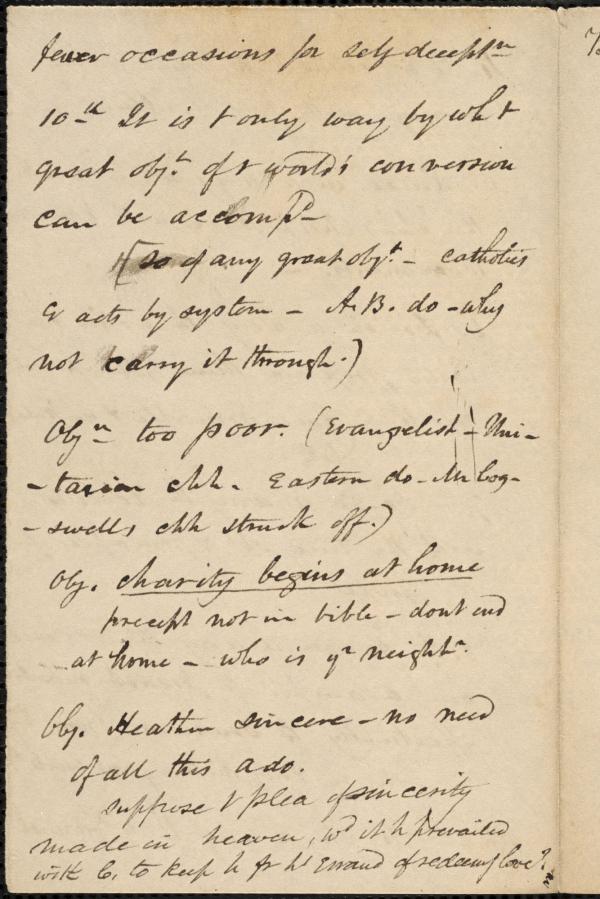 fewer occasions for self decept.n
10th It is t only way by wh t
great obj.t of t world's conversion
can be accomp.d
(so of any great obj.t - catholics
& acts by system - A.B. do - why
not carry it through.)
Obj.n too poor. (Evangelist - Uni-
-tarian chh. Eastern do - Mr Cog-
-swells chh struck off.)
Obj. charity begins at home
precept not in bible - dont end
at home - who is yr neighbr.
Obj. Heathen sincere - no need
of all this ado.
suppose t plea of sincerity
made in heaven, wd it h prevailed
with C. to keep h fr hs errand of redeemg love?